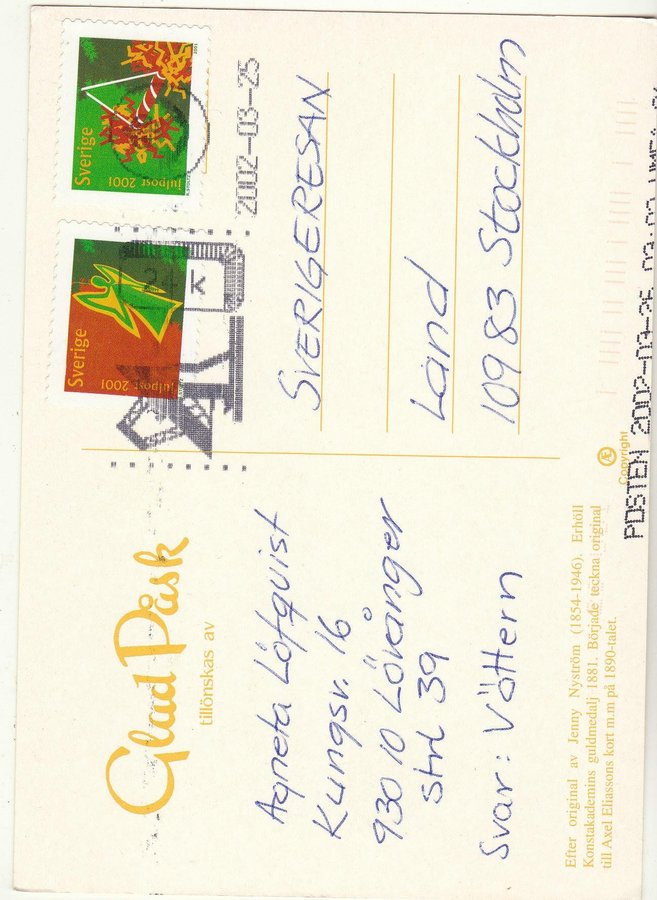 Glad Påsk
tillönskas av
Agneta Löfqvist
Kungsv. 16
930 10 Lövånger
Strl 39
Svar: Vättern
Efter original av Jenny Nyström (1854-1946). Erhöll
Konstakademins guldmedalj 1881. Började teckna original
till Axel Eliassons kort m.m på 1890-talet.
Sverige
julpost 2001
Sverige
julpost 2001
2002-03-25
SVERIGERESAN
Land
109 83 Stockholm
Æ
Copyright
POSTEN 2002-03-26